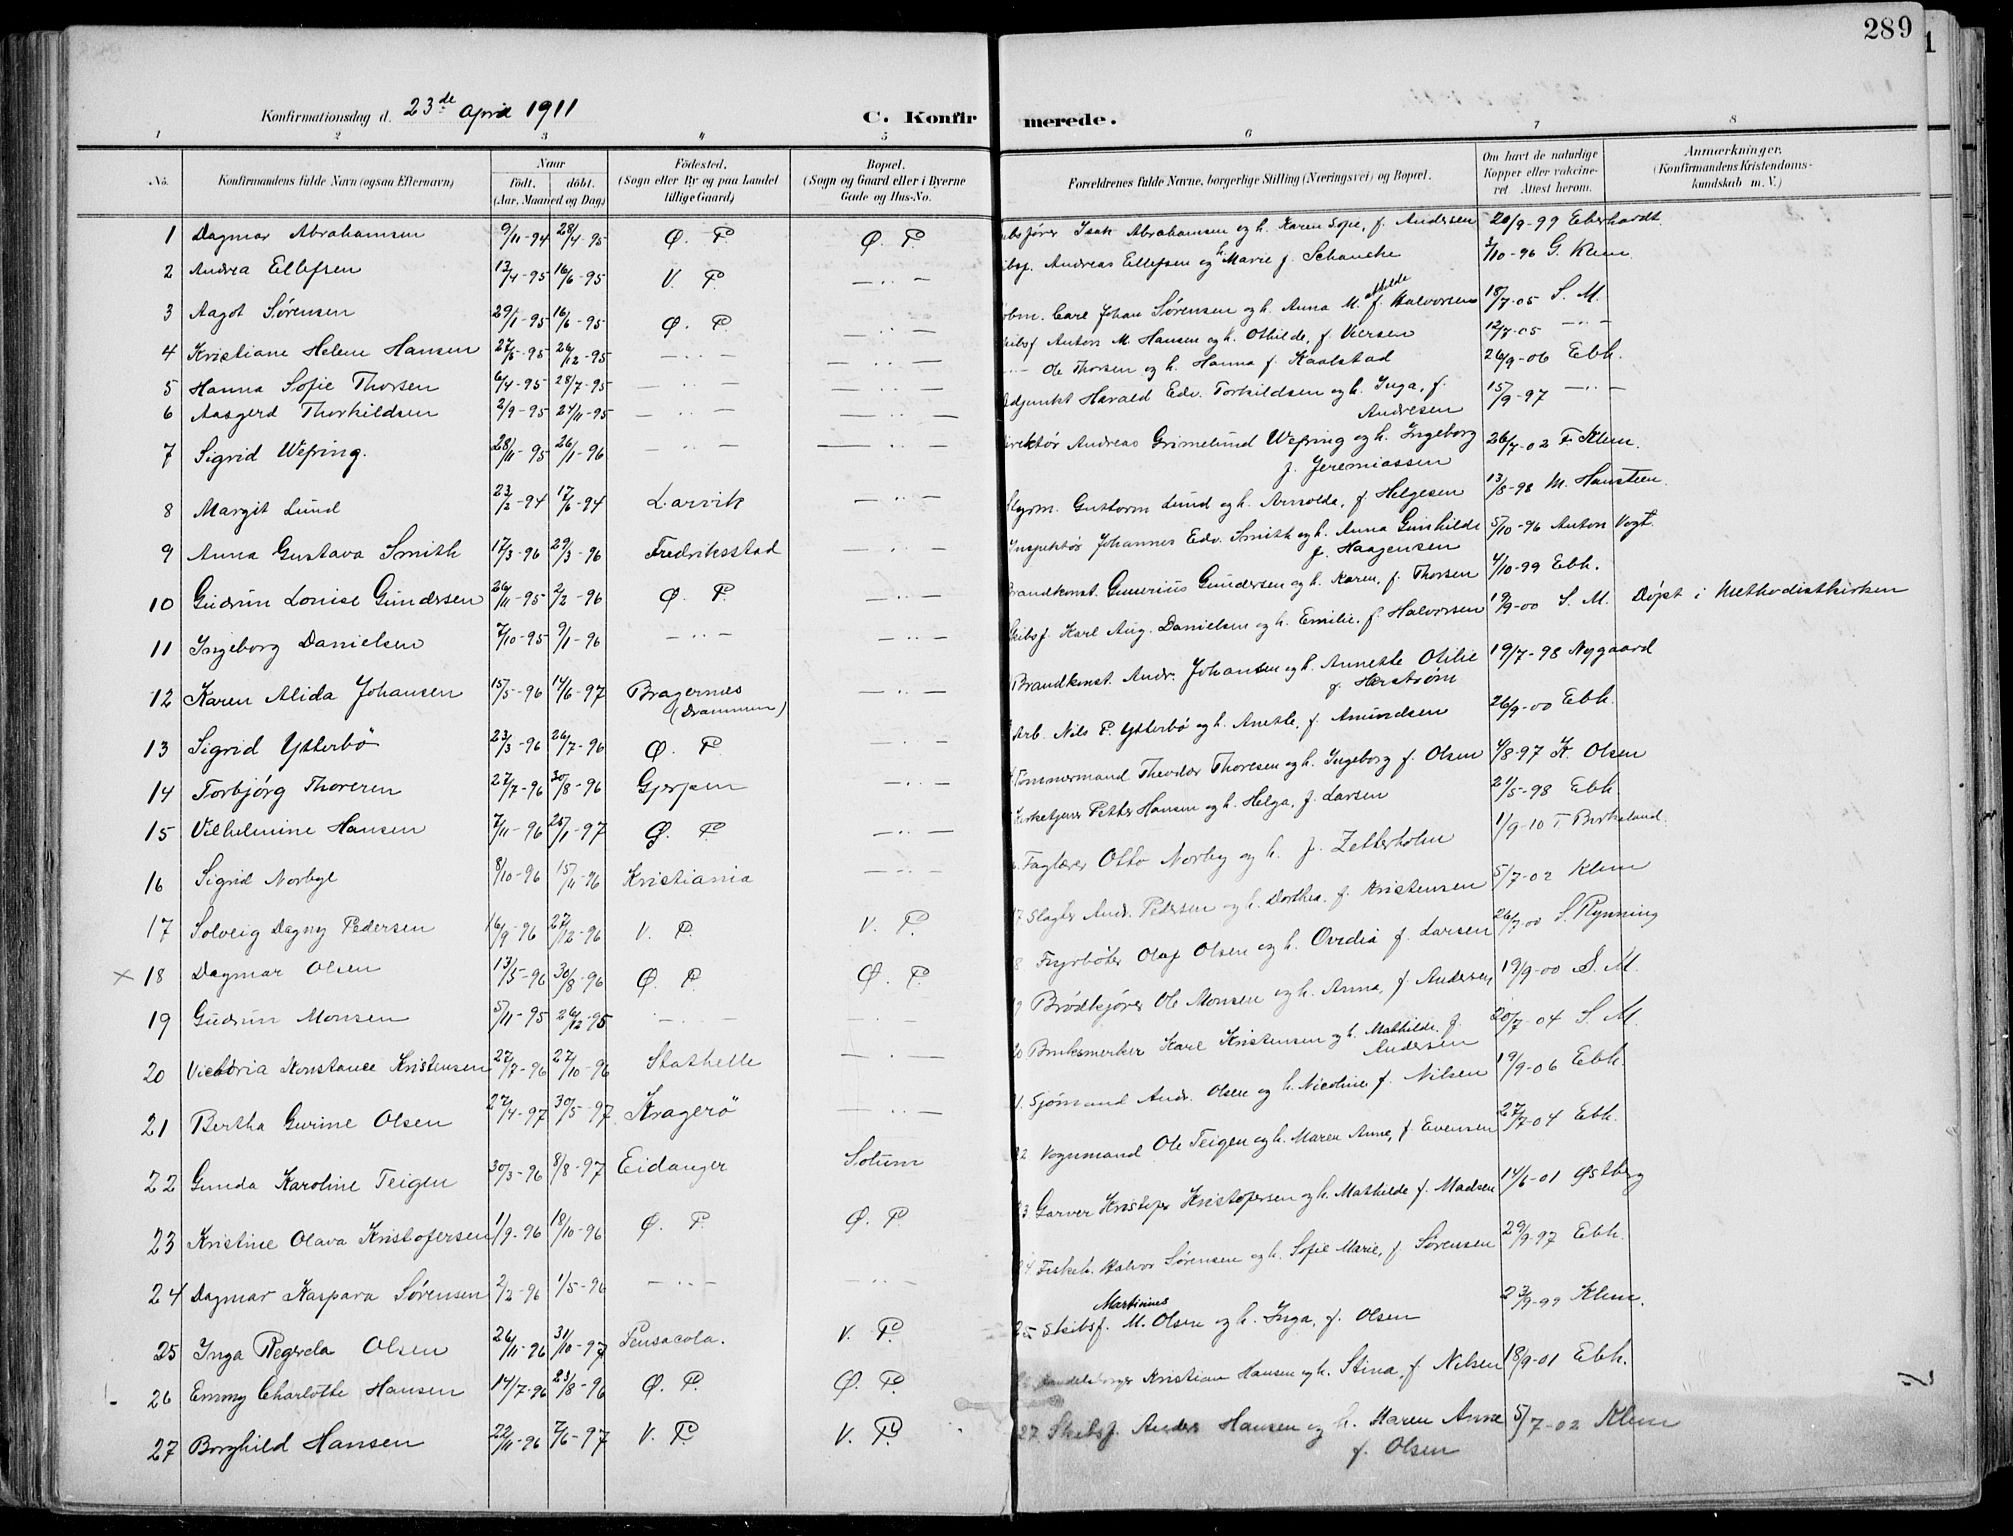 289
Konfirmationsdag d. 23de April 1911 C. Konfirmerede.
1 2 3 4 5 6 7 8
No. Konfirmandens fulde Navn (ogsaa Efternavn) Naar født. døbt. (Aar, Maaned og Dag) Fødested. (Sogn eller By og paa Landet tillige Gaard) Bopæl. (Sogn og Gaard eller i Byerne Gade og Hus-No. Forældrenes fulde Navne, borgerlige Stilling (Næringsvei) og Bopæl. Om havt de naturlige Kopper eller vakcineret. Attest herom. Anmærkninger. (Konfirmandens Kristendomskundskab m. V.)
1 Dagmar Abrahamsen 9/11-94 28/4-95 Ø. P. Ø. P. Isak Abrahamsen og h. Karen Sofie, f. Andersen 20/9-99 Eberhardt.
2 Andrea Ellefsen 13/4-95 16/6-95 V. P. — .. — Andreas Ellefsen og h. Marie f. Schanche 3/10-96 G. Klem
3 Aagot Sørensen 29/1-95 16/6-95 Ø. P. — .. — Carl Johan Sørensen og h. Anna M. f. Halvorsen 18/7-05 S. M.
4 Kristiane Helene Hansen 27/5-95 26/12-95 — .. — — .. — Anton M. Hansen og h. Othilde, f. Iversen 12/7-05 — .. —
5 Hanna Sofie Thorsen 6/4-95 28/7-95 — .. — — .. — Ole Thorsen og h. Hanna f. Kaalstad 26/9-06 Ebh.
6 Aasgerd Thorkildsen 2/9-95 24/11-95 — .. — — .. — Adjunkt Harald Edv. Torkildsen og h. Inga, f. Andresen 15/9-97 — .. —
7 Sigrid Wefring. 28/11-95 26/1-96 — .. — — .. — Direktør Andreas Grimelund Wefring og h. Ingeborg f. Jeremiassen 26/7-02 F. Klem.
8 Margit Lund 23/2-94 17/6-94 Larvik — .. — Styrm. Guttorm Lund og h. Arnolda, f. Helgesen 13/8-98 M. Hansteen.
9 Anna Gustava Smith 17/3-96 29/3-96 Fredriksstad — .. — Inspektør Johannes Edv. Smith og h. Anna Gunhilde f. Haagensen 5/10-96 Anton Vogt.
10 Gudrun Louise Gundersen 26/11-95 2/2-96 Ø. P. — .. — Brandkonst. Gunerius Gundersen og h. Karen, f. Thorsen 4/10-99 Ebh.
11 Ingeborg Danielsen 7/10-95 9/1-96 — .. — — .. — Skibsf. Karl Aug. Danielsen og h. Emilie, f. Halvorsen 19/9-00 S. M. Døpt i Methodistkirken
12 Karen Alida Johansen 15/5-96 14/6-97 Bragernes (Drammen) — .. — Brandkonst. Andr. Johansen og h. Annette Otilie f. Herstrøm 19/7-98 Nygaard
13 Sigrid Ytterbö 23/3-96 26/7-96 Ø. P. — .. — Arb. Nils P. Ytterbø og h. Anette, f. Amundsen 26/9-00 Ebh.
14 Torbjørg Thoresen 27/7-96 30/8-96 Gjerpen — .. — Tømmermand Theodor Thoresen og h. Ingeborg f. Olsen 4/8-97 K. Olsen
15 Vilhelmine Hansen 7/11-96 25/1-97 Ø. P. — .. — Kirketjener Petter Hansen og h. Helga, f. Larsen 21/5-98 Ebh.
16 Sigrid Norbye 8/10-96 15/11-96 Kristiania — .. — Faglærer Otto Norby og h. f. Zetterholm 1/9-10 T. Birkeland.
17 Solveig Dagny Pedersen 16/9-96 27/12-96 V. P. V. P. 17 Slagter Andr. Pedersen og h. Dorthea, f. Kristensen 5/7-02 Klem
× 18 Dagmar Olsen 13/5-96 30/8-96 Ø. P. Ø. P. Fyrbøter Olaf Olsen og h. Ovedia f. Larsen 26/7-00 S. Rynning
19 Gudrun Monsen 5/11-95 26/12-95 — .. — — .. — Brødkjører Ole Monsen og h. Anna, f. Andersen, 19/9-00 S. M.
20 Victoria Konstance Kristensen 27/7-96 27/10-96 Stathelle — .. — Karl Kristensen og h. Mathilde f. Andersen 20/7-04 S. M.
21 Bertha Gurine Olsen 27/4-97 30/5-97 Kragerö — .. — Sjømand Andr. Olsen og h. Nicoline f. Nilsen 19/9-06 Ebh.
22 Gunda Karoline Teigen 30/3-96 8/8-97 Eidanger Solum Vognmand Ole Teigen og h. Maren Anne, f. Evensen 27/7-04 Ebh.
23 Kristine Olava Kristofersen 1/9-96 18/10-96 Ø. P. Ø. P. Garver Kristofer Kristofersen og h. Mathilde f. Madsen 14/6-01 Østberg
24 Dagmar Kaspara Sørensen 2/2-96 1/5-96 — .. — — .. — Fiskeh. Halvor Sørensen og h. Sofie Marie, f. Sørensen 29/9-97 Ebh.
25 Inga Regerda Olsen 26/11-96 31/10-97 Pensacola. V. P. 25 Skibsf. Martinius M. Olsen og h. Inga, f. Olsen 23/9-99 Klem.
26 Emmy Charlotte Hansen 14/7-96 23/8-96 Ø. P. Ø. P. Kristian Hansen og h. Stina, f. Nilsen 18/9-01 Ebh.
27 Borghild Hansen 22/11-96 7/6-97 V. P. V. P. 27. Skibsf. Anders Hansen og h. Maren Anne f. Olsen 5/7-02 Klem